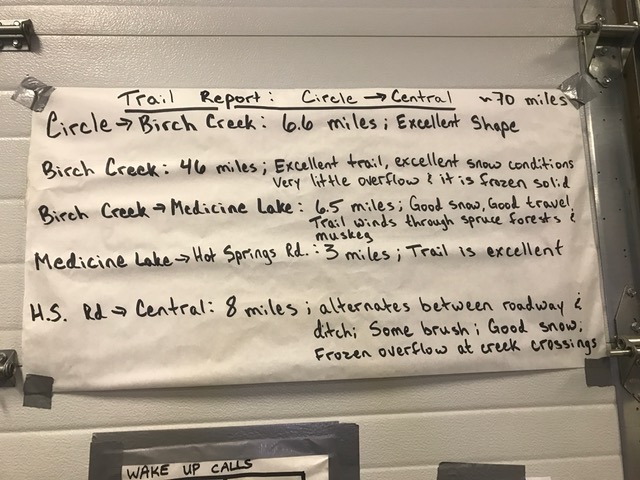 Trail Report: Circle → Central ~70 miles
Circle → Birch Creek: 6.6 miles; Excellent Shape
Birch Creek: 46 miles; Excellent trail, excellent snow conditions
Very little overflow & it is frozen solid
Birch Creek → Medicine Lake: 6.5 miles; Good snow, Good travel,
Trail winds through spruce forests &
muskeg
Medicine Lake → Hot Springs Rd.: 3 miles; Trail is excellent
H.S. Rd → Central: 8 miles; alternates between roadway &
ditch; Some brush; Good snow;
Frozen overflow at creek crossings
WAKE UP CALLS